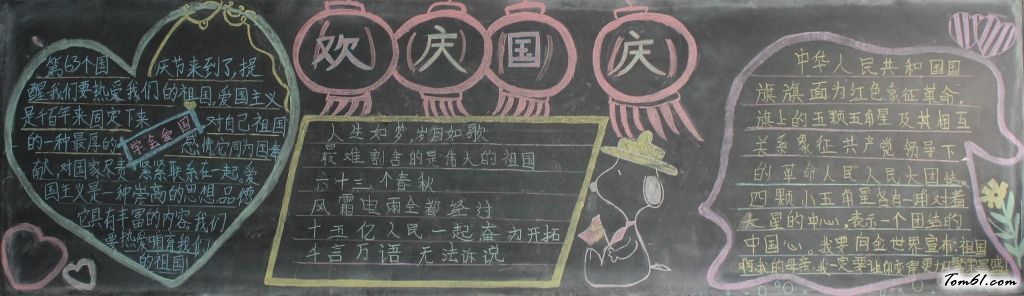 欢庆国庆
第63个国 庆节来到了,提
醒我们要热爱我们的祖国,爱国主义
是千百年来固定下来 对自己祖国
的一种最厚的
学会爱国
献,对国家尽责 紧紧联系在一起,爱
国主义是一种崇高的思想品德
它具有丰富的内容,我们
要热爱
的祖国
人生如梦,岁月如歌
最难割舍的是伟大的祖国
六十三个春秋
风霜虫雨全都经过
十五亿人民一起奋力开拓
千言万语 无法诉说
中华人民共和国国
旗旗面为红色象征革命,
旗上的五颗五角星及其相互
关系象征共产党领导下
的革命人民人民大团结,
四颗小五角星各有一角对着
大星的中心,表示一个团结的
中国心。我要向全世界宣布:祖国
啊我的母亲,我一定要让你变得更
Tom61.com